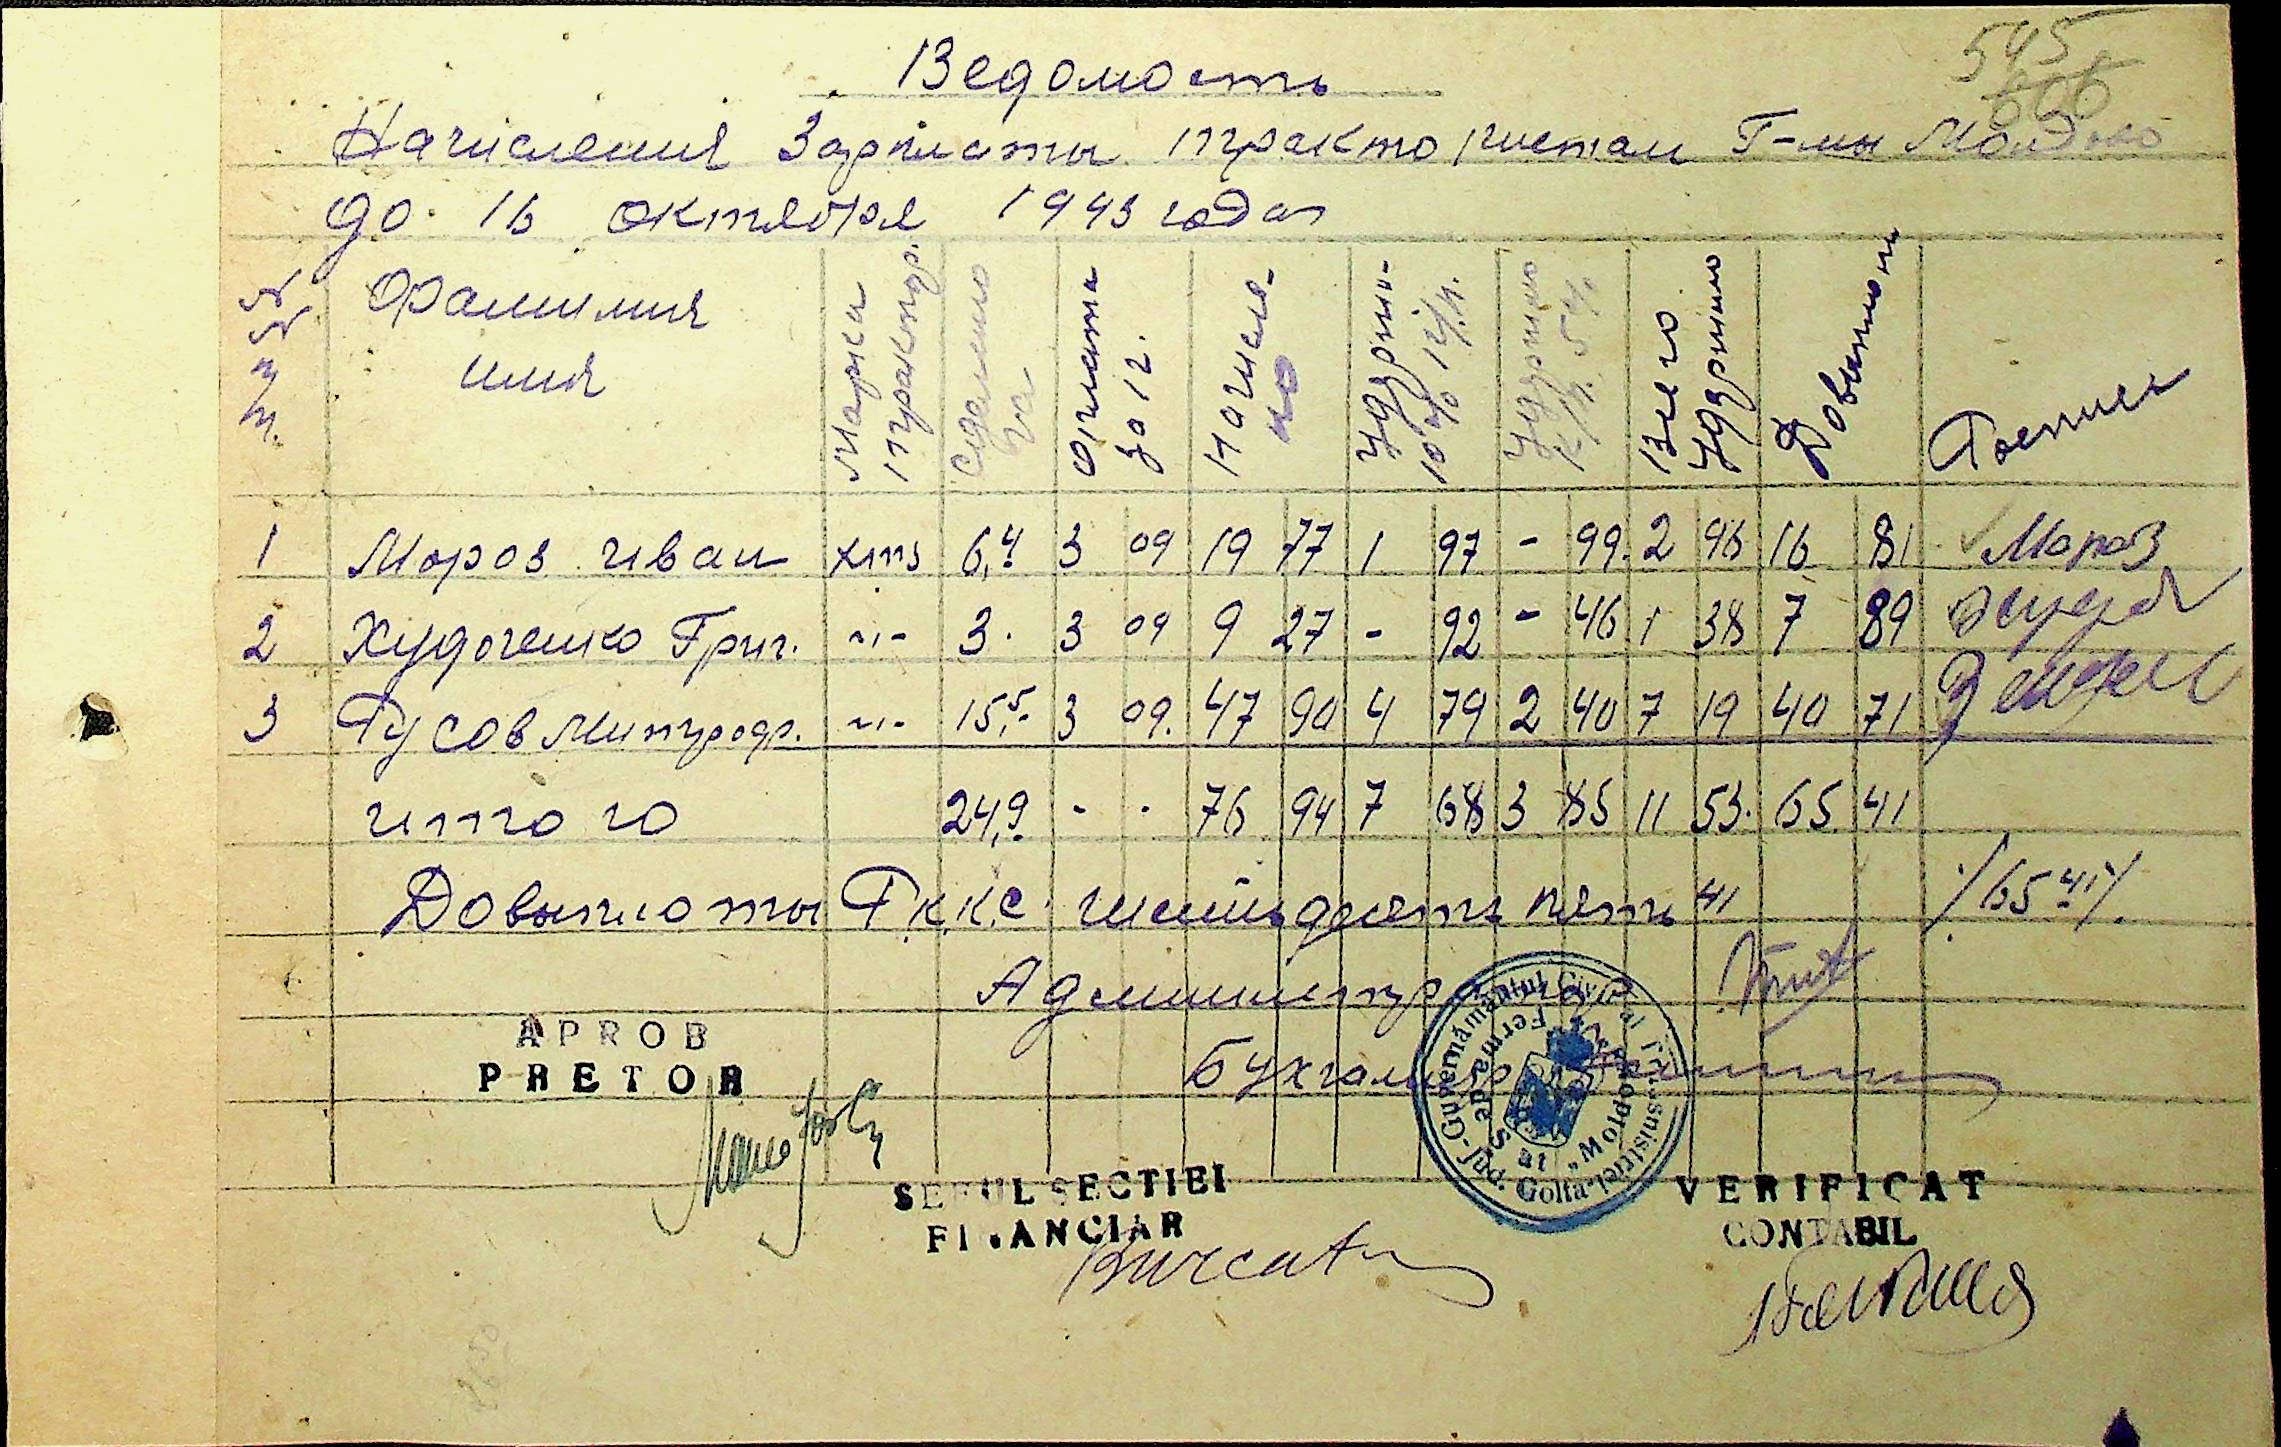 545
606
Ведомость
Начисления Зарплаты трактористам Г-мы Молдово
до 16 октября 1943 года
№ № п/п. Фамилия имя Марка трактор. Сделано га Оплата за 1 г. Начисле-но Удержи- 10% Удержано 5% Всего Удержано Довыплоты Роспись
1 Мороз Иван хтз 6,4 3 09 19 77 1 97 - 99. 2 96 16 81 Мороз
2 Худоченко Григ. -"- 3. 3 09 9 27 - 92 - 46 1 38 7 89
3 Гусов Митрофр. -"- 15,5 3 09. 47 90 4 79 2 40 7 19 40 71
итого 24,9 - - 76 94 7 68 3 85 11 53. 65 41
Довыплоты Р.К.К.С. шестьдесят пять 41 /65 41/.
Администр
Бухгалтер
Guvernământul Civil al Transnistriei-Jud. Golta
Ferma de Stat
APROB
PRETOR
SEFUL SECTIEI
FINANCIAR
VERIFICAT
CONTABIL